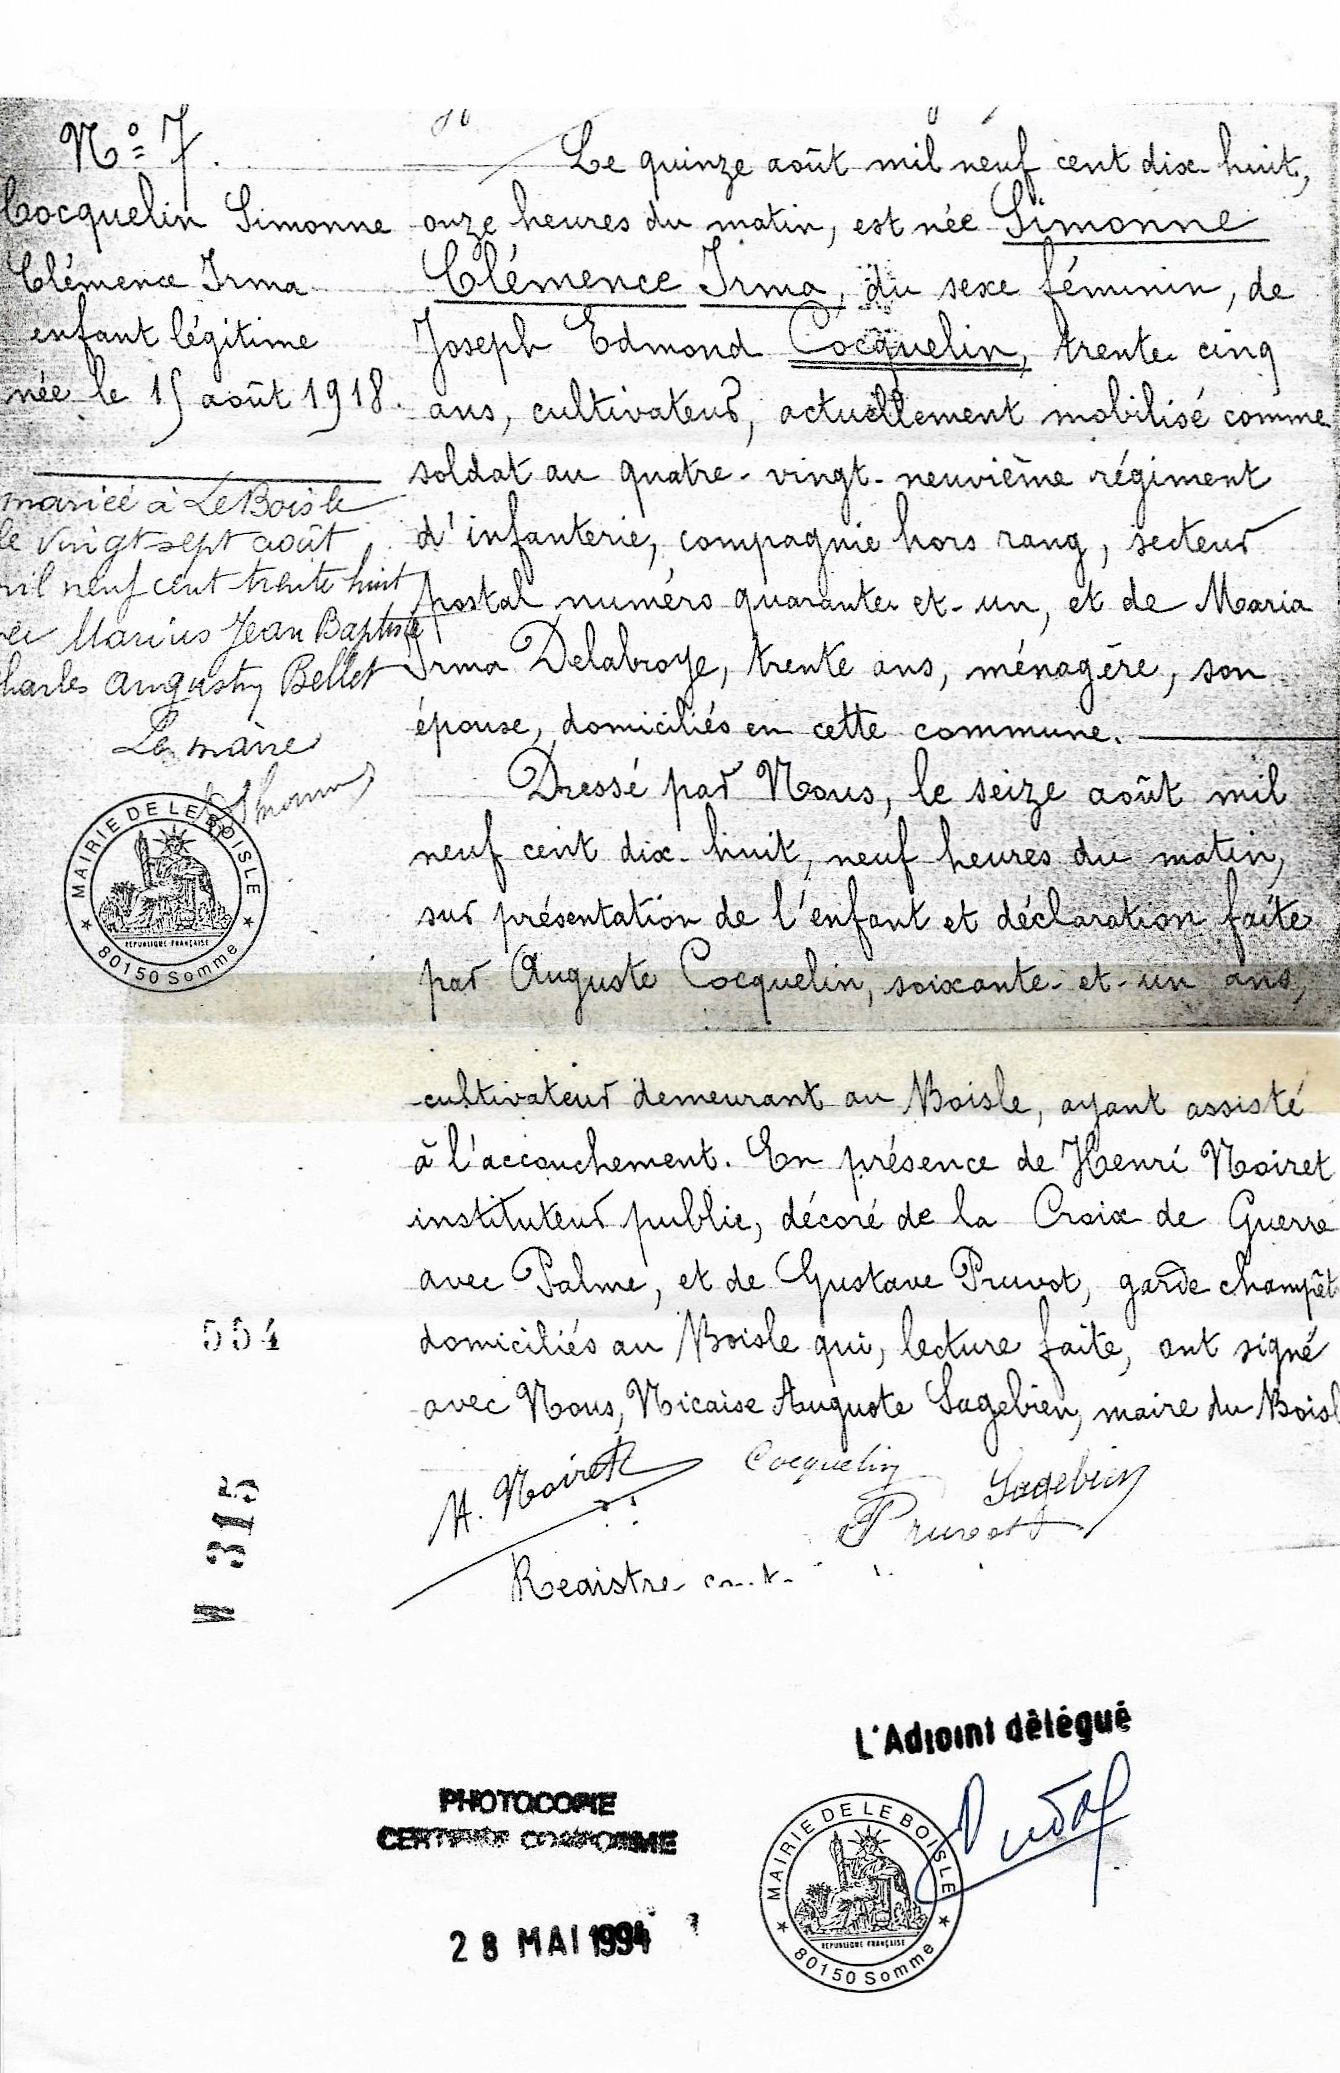 N° 7.
Cocquelin Simonne
Clémence Irma
enfant légitime
née le 15 août 1918.
mariée à Le Boisle
le vingt sept août
mil neuf cent trente huit
Marius Jean Baptiste
Charles Augustin Bellet
Le maire
MAIRIE DE LE BOISLE
REPUBLIQUE FRANÇAISE
80150 Somme
Le quinze août mil neuf cent dix-huit,
onze heures du matin, est née Simonne
Clémence Irma, du sexe féminin, de
Joseph Edmond Cocquelin, trente cinq
ans, cultivateur, actuellement mobilisé comme
soldat au quatre-vingt-neuvième régiment
d'infanterie, compagnie hors rang, secteur
postal numéro quarante-et-un, et de Maria
Irma Delabroye, trente ans, ménagère, son
épouse, domiciliés en cette commune.
Dressé par Nous, le seize août mil
neuf cent dix-huit, neuf heures du matin,
sur présentation de l'enfant et déclaration faite
par Auguste Cocquelin, soixante-et-un ans,
cultivateur demeurant au Boisle, ayant assisté
à l'accouchement. En présence de Henri Noiret
instituteur public, décoré de la Croix de Guerre
avec Palme, et de Gustave Pruvot, garde champêt
domiciliés au Boisle qui, lecture faite, ont signé
avec Nous, Nicaise Auguste Sagebien, maire du Boisl
H. Noiret
Cocquelin
Sagebien
Pruvot
Registre
554
W 315
L'Adjoint délégué
PHOTOCOPIE
CERTIFIÉE CONFORME
28 MAI 1994
MAIRIE DE LE BOISLE
REPUBLIQUE FRANÇAISE
80150 Somme